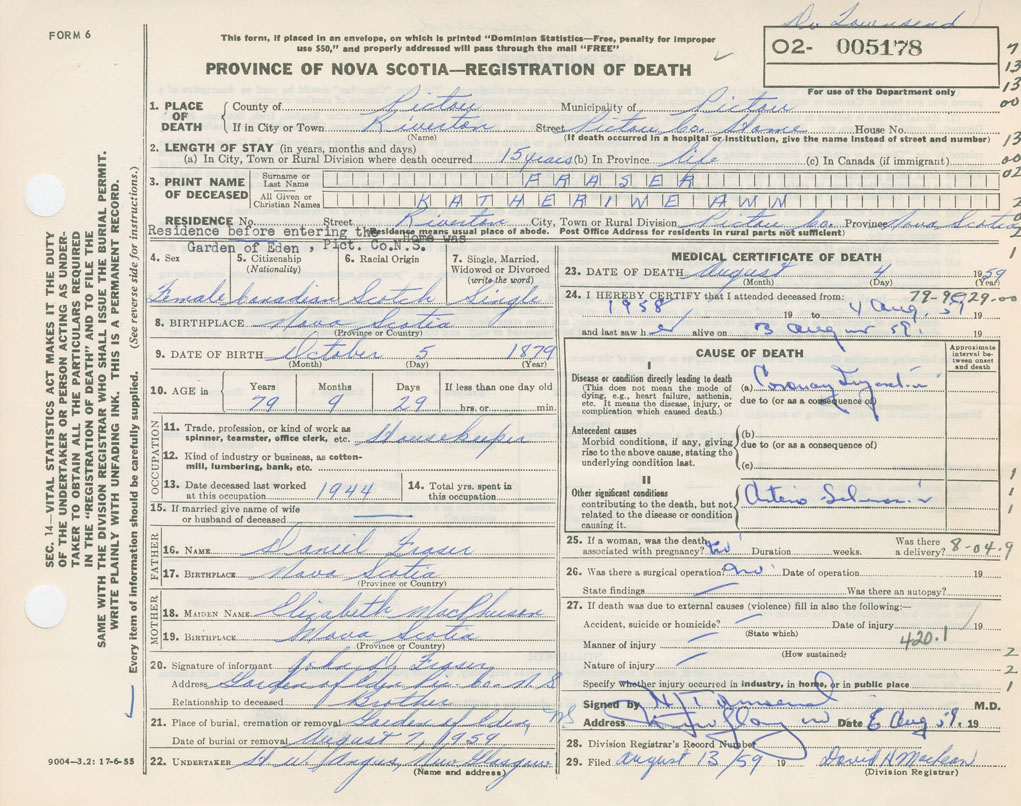 FORM 6
This form, if placed in an envelope, on which is printed "Dominion Statistics—Free, penalty for improper
use $50," and properly addressed will pass through the mail "FREE"
Dr Townsend
02- 005178
For use of the Department only
PROVINCE OF NOVA SCOTIA—REGISTRATION OF DEATH
SEC. 14—VITAL STATISTICS ACT MAKES IT THE DUTY
OF THE UNDERTAKER OR PERSON ACTING AS UNDER-
TAKER TO OBTAIN ALL THE PARTICULARS REQUIRED
IN THE "REGISTRATION OF DEATH" AND TO FILE THE
SAME WITH THE DIVISION REGISTRAR WHO SHALL ISSUE THE BURIAL PERMIT.
WRITE PLAINLY WITH UNFADING INK. THIS IS A PERMANENT RECORD.
Every item of information should be carefully supplied. (See reverse side for instructions.)
1. PLACE OF DEATH
County of Pictou Municipality of Pictou
If in City or Town Riverton Street Pictou Co. Home House No.
(Name) (If death occurred in a hospital or institution, give the name instead of street and number)
2. LENGTH OF STAY (in years, months and days)
(a) In City, Town or Rural Division where death occurred 15 years (b) In Province life (c) In Canada (if immigrant)
3. PRINT NAME OF DECEASED
Surname or Last Name FRASER
All Given or Christian Names KATHERINE ANN
RESIDENCE No. Street Riverton City, Town or Rural Division Pictou Co. Province Nova Scotia
Residence before entering the Home was
Residence means usual place of abode. Post Office Address for residents in rural parts not sufficient)
Garden of Eden, Pict. Co.N.S.
4. Sex
Female
5. Citizenship (Nationality)
Canadian
6. Racial Origin
Scotch
7. Single, Married, Widowed or Divorced (write the word)
Single
8. BIRTHPLACE Nova Scotia
(Province or Country)
9. DATE OF BIRTH October 5 1879
(Month) (Day) (Year)
10. AGE in
Years Months Days If less than one day old
79 9 29 hrs. or min.
OCCUPATION
11. Trade, profession, or kind of work as
spinner, teamster, office clerk, etc. Housekeeper
12. Kind of industry or business, as cotton-
mill, lumbering, bank, etc.
13. Date deceased last worked
at this occupation 1944
14. Total yrs. spent in
this occupation
15. If married give name of wife
or husband of deceased
FATHER
16. NAME Daniel Fraser
17. BIRTHPLACE Nova Scotia
(Province or Country)
MOTHER
18. MAIDEN NAME Elizabeth MacPherson
19. BIRTHPLACE Nova Scotia
(Province or Country)
20. Signature of informant John D. Fraser
Address Garden of Eden Pic. Co. N S
Relationship to deceased Brother
21. Place of burial, cremation or removal Garden of Eden, NS
Date of burial or removal August 7, 1959
22. UNDERTAKER H. W. Angus, New Glasgow
(Name and address)
9004—3.2: 17-6-55
MEDICAL CERTIFICATE OF DEATH
23. DATE OF DEATH August 4 1959
(Month) (Day) (Year)
79-9-29-00
24. I HEREBY CERTIFY that I attended deceased from:
1958 19 to 4 Aug. 59 19
and last saw her alive on 3 August 59. 19
CAUSE OF DEATH
Approximate interval between onset and death
I
Disease or condition directly leading to death
(This does not mean the mode of
dying, e.g., heart failure, asthenia,
etc. It means the disease, injury, or
complication which caused death.)
(a) Coronary
due to (or as a consequence of)
Antecedent causes
Morbid conditions, if any, giving
rise to the above cause, stating the
underlying condition last.
(b)
due to (or as a consequence of)
(c)
II
Other significant conditions
contributing to the death, but not
related to the disease or condition
causing it.
Arterio
25. If a woman, was the death
associated with pregnancy? no Duration weeks. Was there
a delivery? 8-04.9
26. Was there a surgical operation? no Date of operation 19
State findings Was there an autopsy?
27. If death was due to external causes (violence) fill in also the following:—
Accident, suicide or homicide? Date of injury 19
(State which)
420.1
Manner of injury
(How sustained)
Nature of injury
Specify whether injury occurred in industry, in home, or in public place
Signed by H Townsend M.D.
Address Date 8 Aug 59. 19
28. Division Registrar's Record Number
29. Filed August 13/59 19 David H MacLean
(Division Registrar)